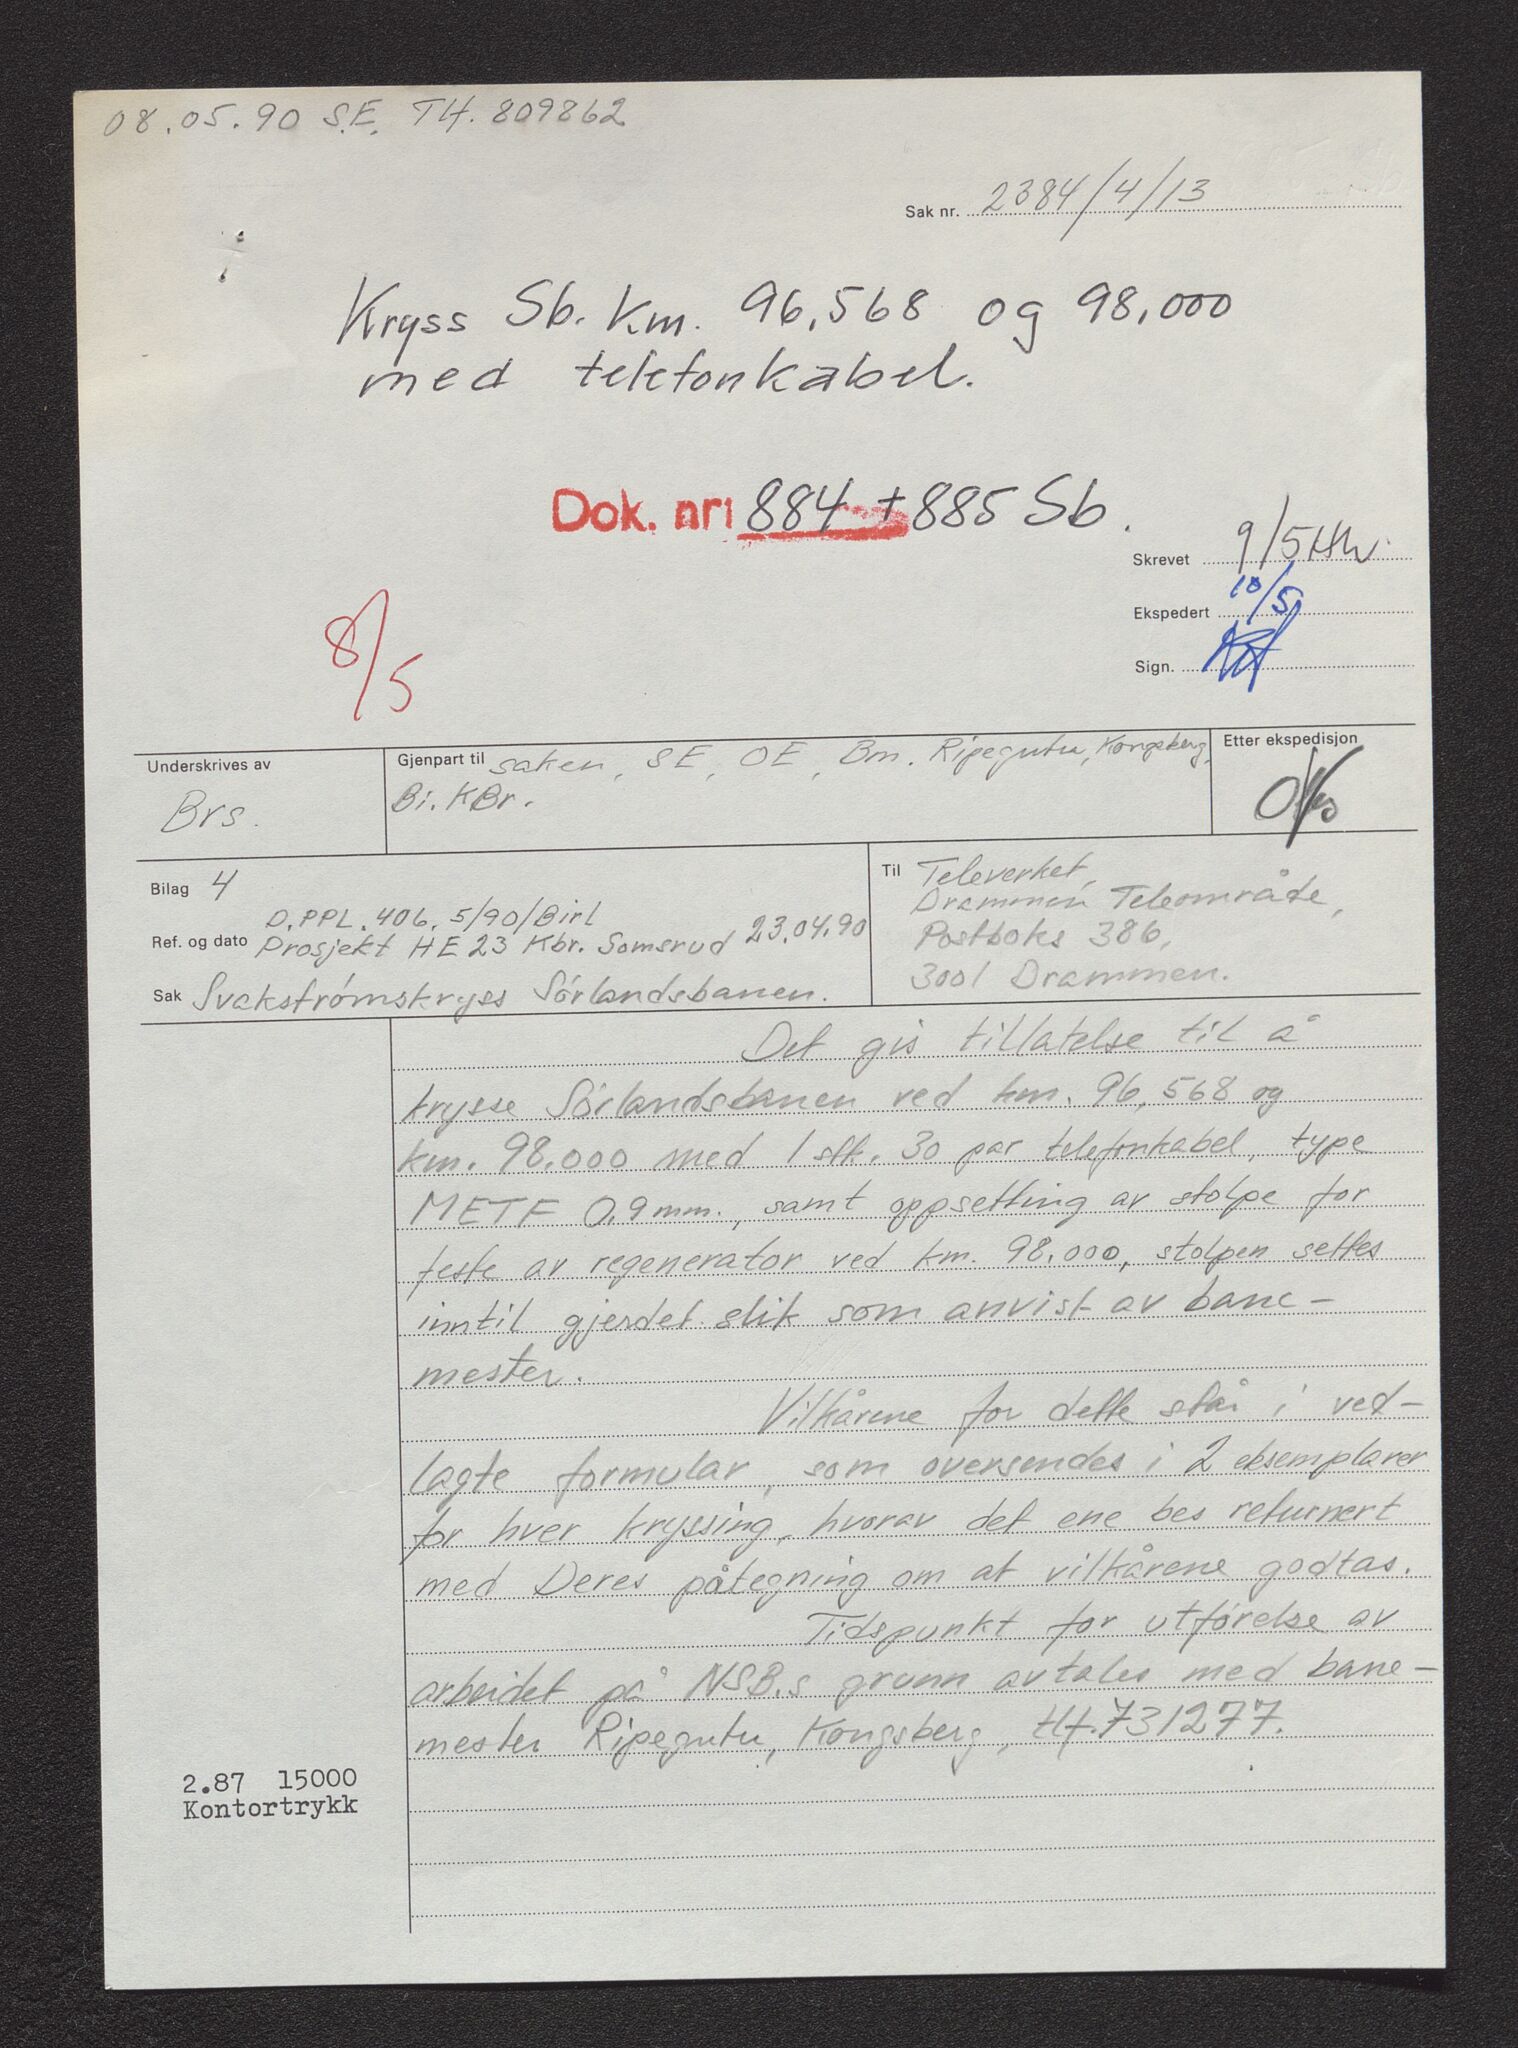 08.05.90 S.E. Tlf. 809862
Sak nr. 2384/4/13
Kryss Sb. Km. 96,568 og 98,000
med telefonkabel.
Dok. nr: 884 + 885 Sb.
Skrevet 9/5 HW
Ekspedert 10/5
8/5
Sign.
Underskrives av
Brs.
Gjenpart til saken, SE, OE, Bm. Ripegutu, Kongsberg,
Bi. KBr.
Etter ekspedisjon
Bilag 4
D.PPL.406.5/90/Birl
Ref. og dato Prosjekt HE 23 Kbr. Somsrud 23.04.90
Sak Svakstrømskryss Sørlandsbanen.
Til Televerket,
Drammen Teleområde,
Postboks 386,
3001 Drammen.
Det gis tillatelse til å
krysse Sørlandsbanen ved km. 96,568 og
km. 98.000 med 1 stk. 30 par telefonkabel, type
METF 0,9 mm., samt oppsetting av stolpe for
feste av regenerator ved km. 98.000, stolpen settes
inntil gjerdet slik som anvist av bane-
mester.
Vilkårene for dette står i ved-
lagte formular, som oversendes i 2 eksemplarer
for hver kryssing, hvorav det ene bes returnert
med Deres påtegning om at vilkårene godtas.
Tidspunkt for utførelse av
arbeidet på NSB.s grunn avtales med bane-
mester Ripegutu, Kongsberg, tlf. 731277.
2.87 15000
Kontortrykk